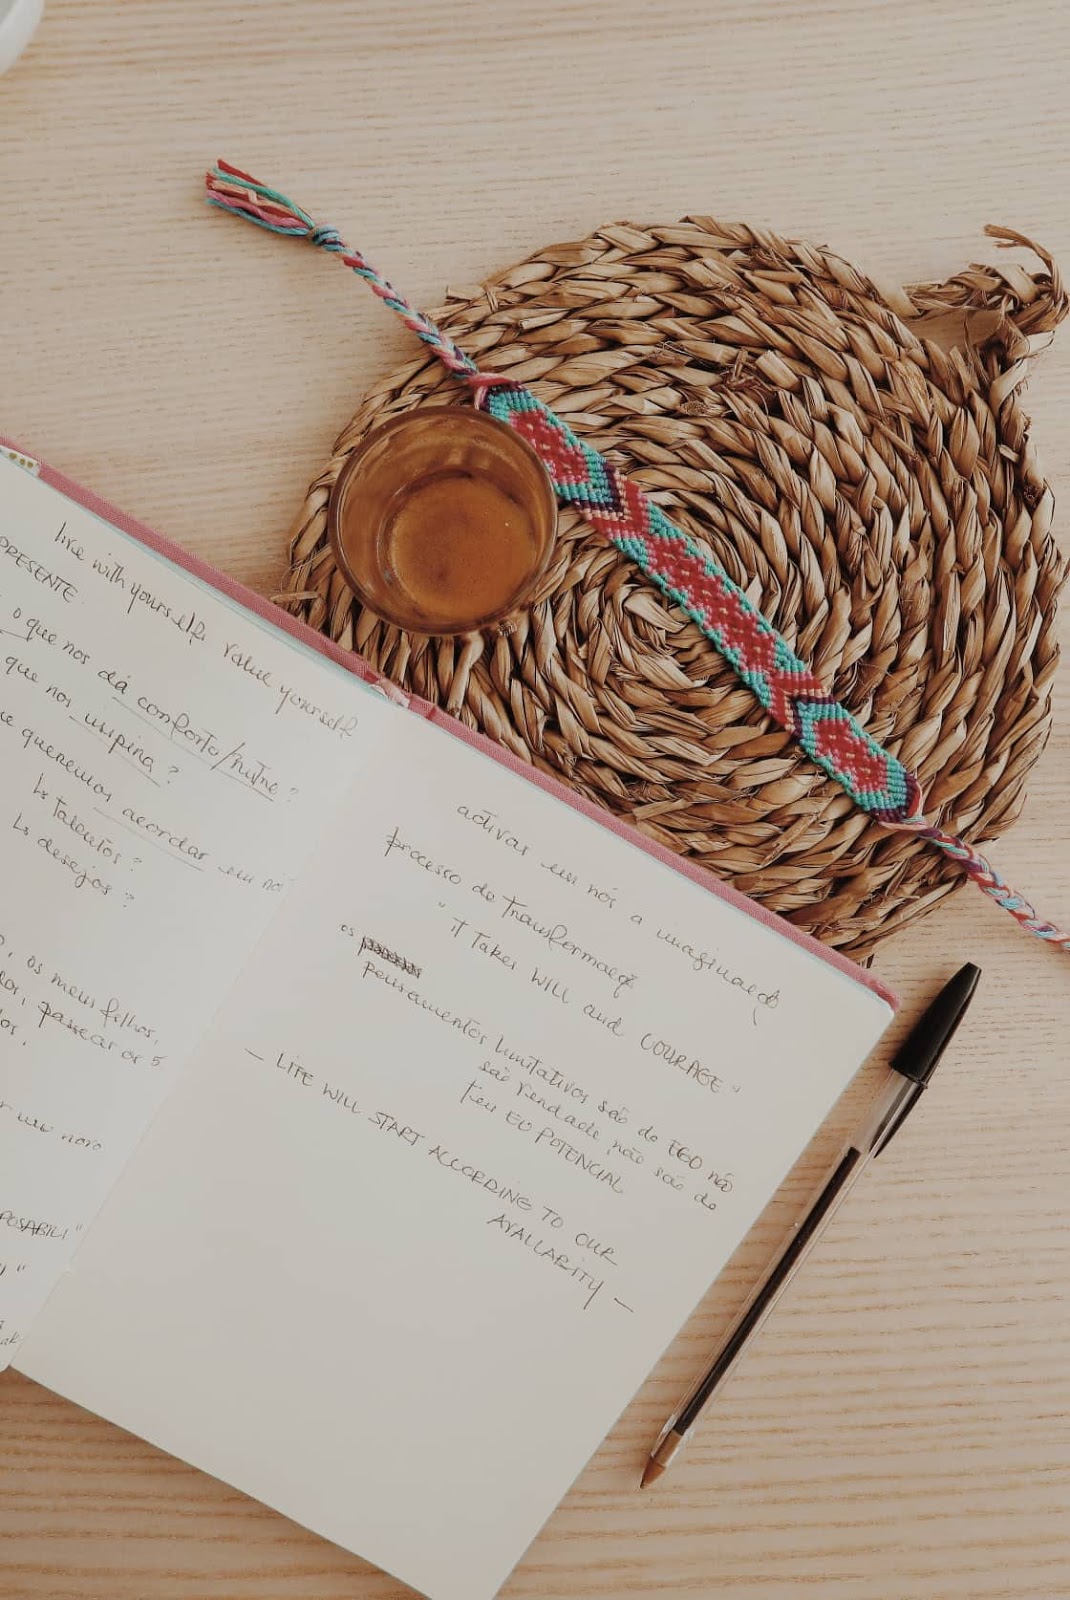 live with yourself value yourself
PRESENTE.
o que nos dá conforto/nutre?
que nos inspira?
queremos acordar em nós
↳ talentos?
↳ desejos?
, os meus filhos,
passear os 5
um novo
activar em nós a imaginação
processo de transformação
"it takes WILL and COURAGE"
os
pensamentos limitativos são do EGO não
são verdade, não são do
teu EU POTENCIAL
— LIFE WILL START ACCORDING TO OUR
AVAILABITY —